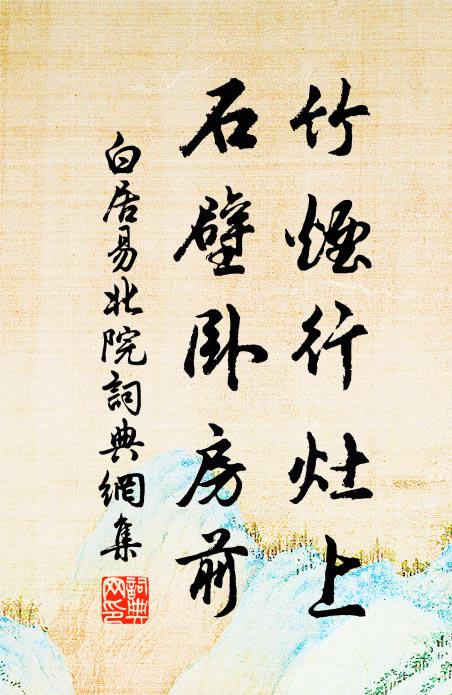 竹煙行灶上
石壁卧房前
白居易北院詞典網集
詞典網印